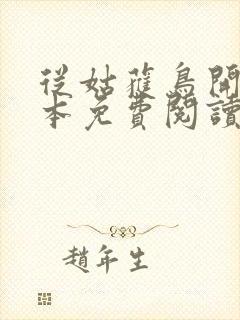 從姑獲鳥開
本免費閱讀
趙年生